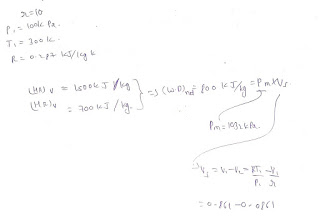 r=10
P₁ = 100k Pa.
T₁ = 300 k.
R = 0.287 kJ/kg k
(HA)v = 1500kJ/kg
(HR)v = 700 kJ/kg.
} => (W.D)net = 800 kJ/kg = Pm × Vs
Pm = 1032 kPa.
Vs = V₁ - V₂ = RT₁/P₁ - V₁/r
= 0.861 - 0.0861